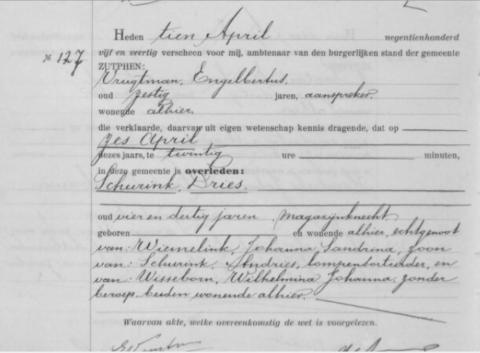 Heden tien April negentienhonderd
No 127 vijf en veertig verscheen voor mij, ambtenaar van den burgerlijken stand der gemeente
ZUTPHEN:
Vrugtman, Engelbertus,
oud zestig jaren, aanspreker,
wonende alhier,
die verklaarde, daarvan uit eigen wetenschap kennis dragende, dat op
zes April
dezes jaars, te twintig ure minuten,
in deze gemeente is overleden:
Schurink, Dries,
oud vier en dertig jaren, magazijnknecht
geboren en wonende alhier, echtgenoot
van: Wiemelink, Johanna, Sandrina, zoon
van: Schurink, Andries, lompensorteerder, en
van: Wisseborn, Wilhelmina Johanna, zonder
beroep, beiden wonende alhier.
Waarvan akte, welke overeenkomstig de wet is voorgelezen.